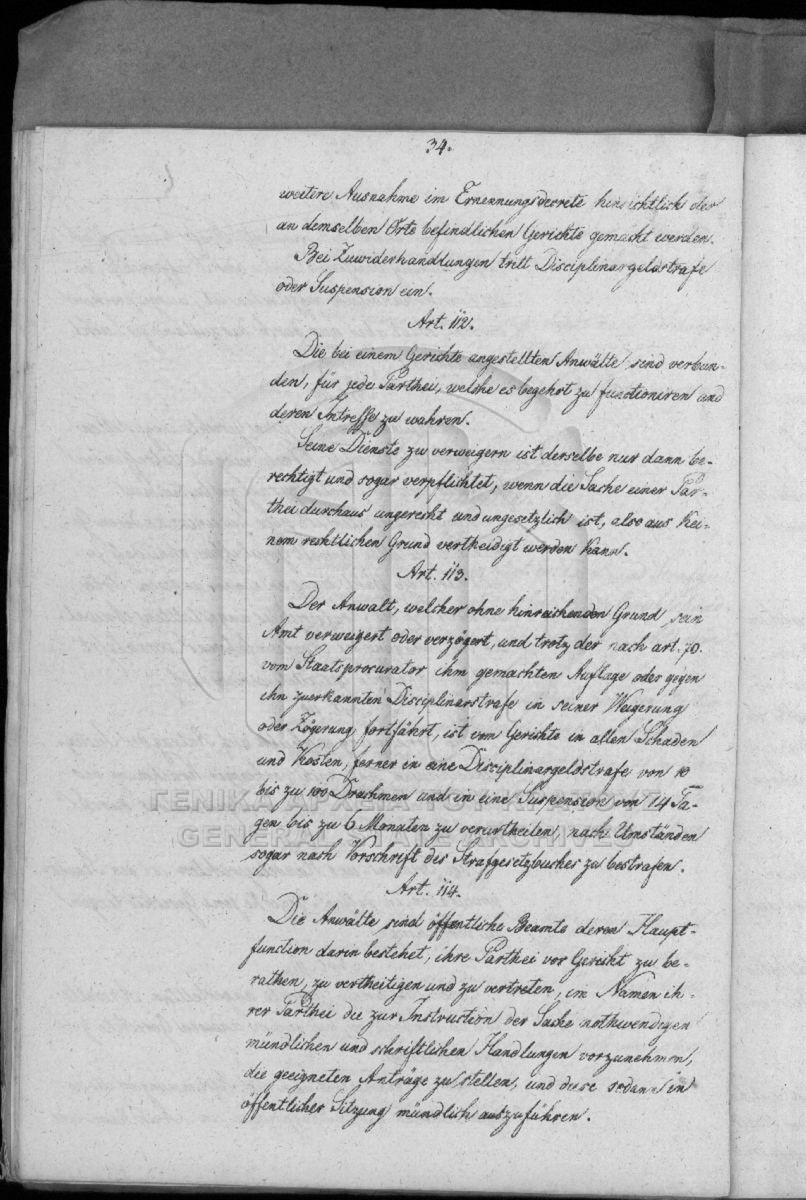 34.
weitere Ausnahme im Ernennungsdecrete hinsichtlich der
an demselben Orte befindlichen Gerichte gemacht werden.
Bei Zuwiderhandlungen tritt Disciplinargeldstrafe
oder Suspension ein.
Art. 112.
Die bei einem Gerichte angestellten Anwälte sind verbun-
den, für jede Parthei, welche es begehrt zu functioniren und
deren Intresse zu wahren.
Seine Dienste zu verweigern ist derselbe nur dann be-
rechtigt und sogar verpflichtet, wenn die Sache einer Par-
thei durchaus ungerecht und ungesetzlich ist, also aus kei-
nem rechtlichen Grund vertheidigt werden kann.
Art. 113.
Der Anwalt, welcher ohne hinreichenden Grund sein
Amt verweigert oder verzögert, und trotz der nach art. 70.
vom Staatsprocurator ihm gemachten Auflage oder gegen
ihn zuerkannten Disciplinarstrafe in seiner Weigerung
oder Zögerung fortfährt, ist vom Gerichte in allen Schaden
und Kosten, ferner in eine Disciplinargeldstrafe von 10
bis zu 100 Drachmen und in eine Suspension von 14 Ta-
gen bis zu 6 Monaten zu verurtheilen, nach Umständen
sogar nach Vorschrift des Strafgesetzbuches zu bestrafen.
Art. 114.
Die Anwälte sind öffentliche Beamte deren Haupt-
function darin bestehet, ihre Parthei vor Gericht zu be-
rathen, zu vertheitigen und zu vertreten, im Namen ih-
rer Parthei die zur Instruction der Sache nothwendigen
mündlichen und schriftlichen Handlungen vorzunehmen,
die geeigneten Anträge zu stellen, und diese sodann in
öffentlicher Sitzung mündlich auszuführen.
ΓΕΝΙΚΑ ΑΡΧΕΙΑ ΤΟΥ ΚΡΑΤΟΥΣ
GENERAL STATE ARCHIVES